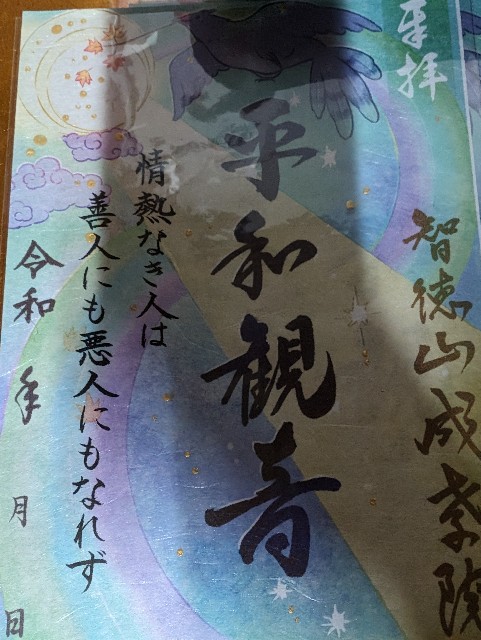 奉拝
智徳山成孝院
平和観音
情熱なき人は
善人にも悪人にもなれず
令和 年 月 日